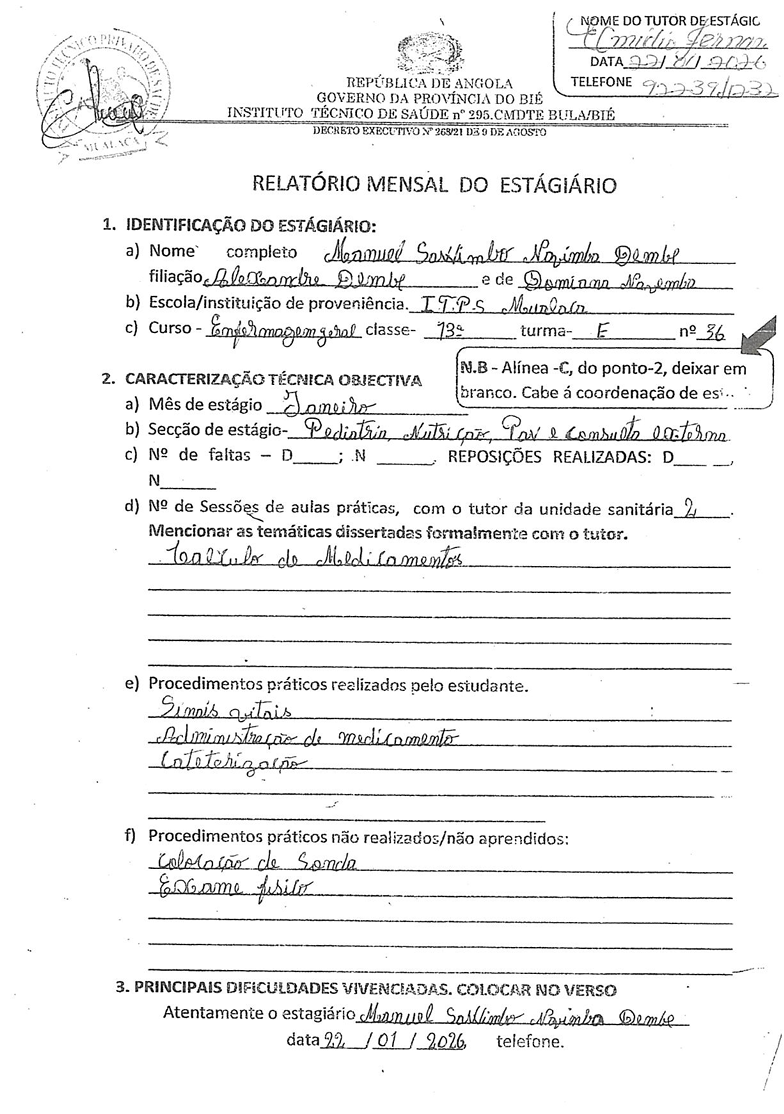 NOME DO TUTOR DE ESTÁGIO
DATA 22/01/2026
TELEFONE
REPÚBLICA DE ANGOLA
GOVERNO DA PROVÍNCIA DO BIÉ
INSTITUTO TÉCNICO DE SAÚDE nº 295.CMDTE BULA/BIÉ
DECRETO EXECUTIVO Nº 268/21 DE 9 DE AGOSTO
RELATÓRIO MENSAL DO ESTÁGIÁRIO
1. IDENTIFICAÇÃO DO ESTÁGIÁRIO:
a) Nome completo Manuel Navimbo Dembe
filiação Alexandre Dembe e de
b) Escola/instituição de proveniência. I.T.P.S
c) Curso - Enfermagem geral classe- 13ª turma- E nº 36
N.B - Alínea -C, do ponto-2, deixar em
branco. Cabe á coordenação de es...
2. CARACTERIZAÇÃO TÉCNICA OBJECTIVA
a) Mês de estágio Janeiro
b) Secção de estágio- Pediatria, Nutrição, Pav e consulta externa
c) Nº de faltas – D____; N _____. REPOSIÇÕES REALIZADAS: D___ __,
N_____
d) Nº de Sessões de aulas práticas, com o tutor da unidade sanitária 2.
Mencionar as temáticas dissertadas formalmente com o tutor.
de Medicamentos
e) Procedimentos práticos realizados pelo estudante.
Sinais vitais
Administração de medicamento
Cateterização
f) Procedimentos práticos não realizados/não aprendidos:
Colocação de Sonda
Exame fisico
3. PRINCIPAIS DIFICULDADES VIVENCIADAS. COLOCAR NO VERSO
Atentamente o estagiário Manuel Navimbo Dembe
data 22 / 01 / 2026 telefone.